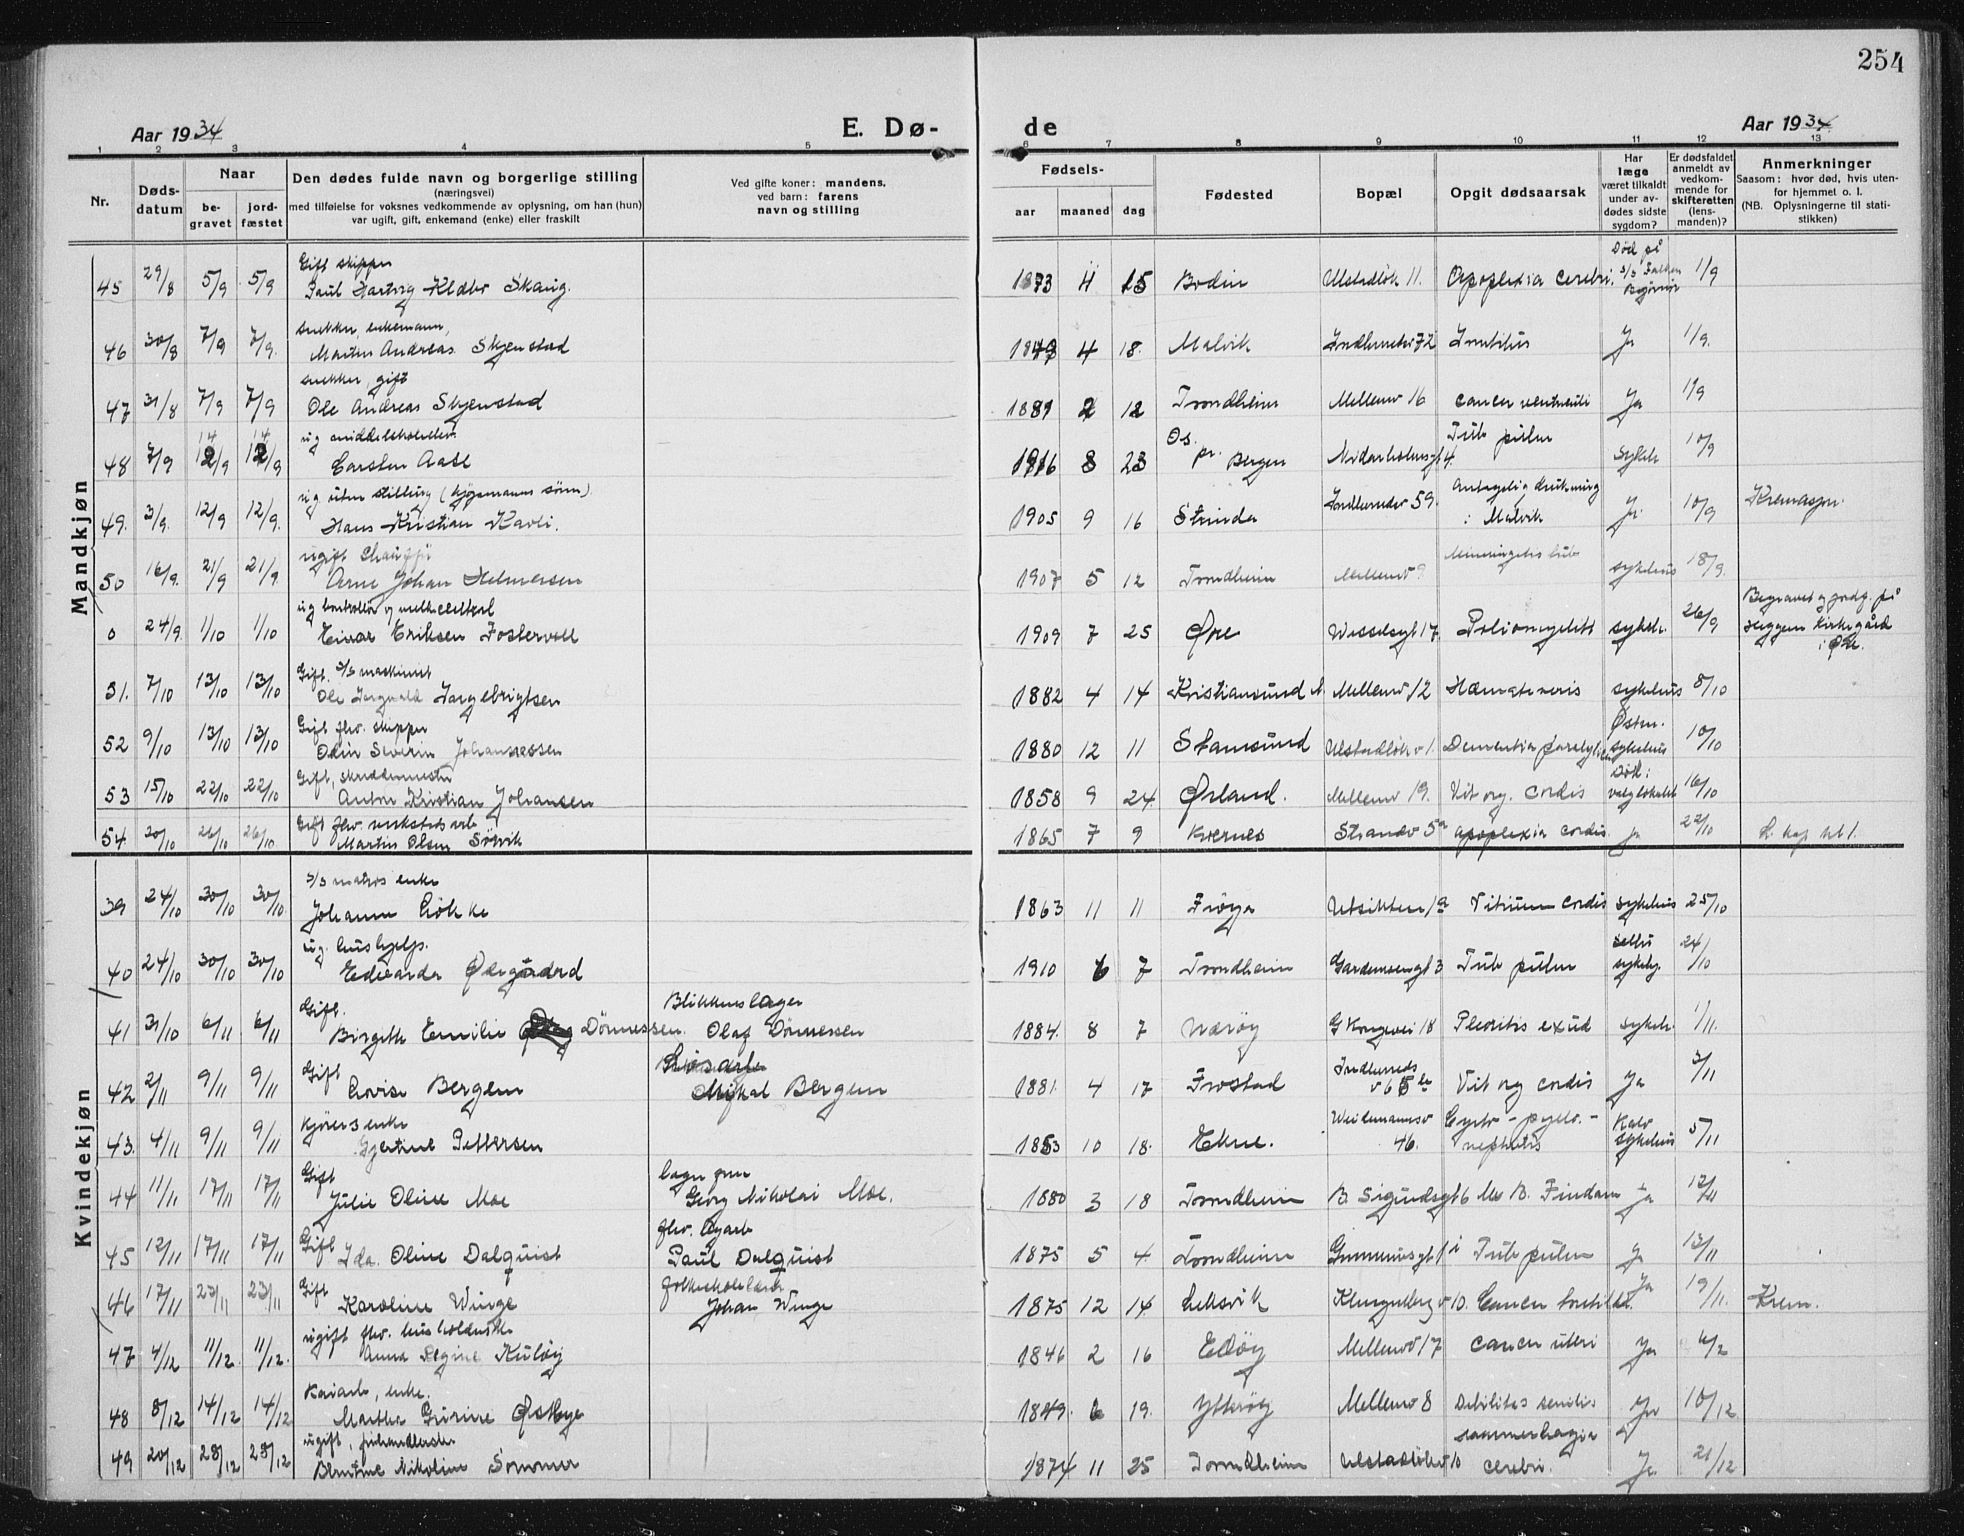 254
Aar 1934
E. Dø-
de
Aar 1934
1 2 3 4 5 6 7 8 9 10 11 12 13
Nr.
Døds-
datum
Naar
be-
gravet
jord-
fæstet
Den dødes fulde navn og borgerlige stilling
(næringsvei)
med tilføielse for voksnes vedkommende av oplysning, om han (hun)
var ugift, gift, enkemand (enke) eller fraskilt
Ved gifte koner: mandens,
ved barn: farens
navn og stilling
Fødsels-
aar
maaned
dag
Fødested
Bopæl
Opgit dødsaarsak
Har
læge
været tilkaldt
under av-
dødes sidste
sygdom?
Er dødsfaldet
anmeldt av
vedkom-
mende for
skifteretten
(lens-
manden)?
Anmerkninger
Saasom: hvor død, hvis uten-
for hjemmet o. l.
(NB. Oplysningerne til stati-
stikken)
Mandkjøn
Gift skipper Død på
45 29/8 5/9 5/9 Paul Hartvig Klæbo Skaug. 1873 4 15 Bodin Ulstadløk 11. Apoplexia cerebri. 1/9
snekker, enkemann,
46 30/8 7/9 7/9. Martin Andreas Skjenstad 4 18. Malvik 72 Ja 1/9.
snekker, gift
47 31/8 7/9 7/9 Ole Andreas Skjenstad 1881 2 12 Trondheim Mellemv 16 cancer ventriculi Ja 1/9
ug middelskoleelev Tub pulm
48 7/9 Carsten Aase 1916 8 23 Os pr. Bergen sykeh 10/9
ug uten stilling (kjøpmanns sønn)
49. 3/9. 12/9 12/9. Hans Kristian Kavli. 1905 9 16 Strinda 59. Antagelig drukning i Malvik Ja. 10/9 Kremasjon.
ugift chauffør
50 16/9. 21/9 21/9. Arne Johan Helmersen 1907 5 12 Trondheim Mellemv 9 Meningitis tub sykehus 18/9.
ug kontrollør v melkecentral
0 24/9. 1/10 1/10 Einar Eriksen Fostervoll 1909 7 25 Øre Wesselsgt 17 Poliomyelitt sykeh. 26/9 Begravet og jordf. på
Heggem Kirkegård
i Øre.
Gift. s/s maskinist
51. 7/10 13/10 13/10 Ole Ingvald Ingebrigtsen 1882 4 14 Kristiansund N Mellemv 12 Hæmatemesis sykehus 8/10
Gift fhv. skipper Østm.
52 9/10 13/10 13/10 Odin Severin Johannessen 1880 12 11 Stamsund Ulstadløkv 1. Dementia paralytica sykehus 10/10
Gift, skreddermester Død i
53 15/10 22/10 22/10 Anton Kristian Johansen 1858 9 24. Ørland. Mellemv 19. Vit org. cordis valglokalet 16/10
Gift fhv. verkstedsarb
54. 20/10 26/10 26/10 Martin Olsen Sørvik 1865 7 9 Kvernes Strandv 5a apoplexia cordis. ja 22/10
Kvindekjøn
s/s matros enke
39 24/10 30/10 30/10. Johanne Løkke 1863 11 11 Frøya Utsikten 19 Vitium cordis sykehus 25/10
ug. hushjelp.
40 24/10 30/10 30/10 Edvarda Ødegaard 1910 6 7 Trondheim Gardemoengt 3 Tub pulm 24/10
Gift. Blikkenslager
41 31/10 6/11 6/11 Birgitte Emilie Dønnessen. Olaf Dønnessen 1884. 8 7 Nærøy G Kongevei 18 Pleuritis exud sykeh. 1/11.
Gift Løsarb
42 2/11 9/11 9/11 Lovise Bergen Mikal Bergen 1881. 4 17 Frostad Vit org cordis ja 3/11
Kjørers enke
43. 4/11 9/11 9/11 Gjertine Pettersen 1853 10 18. Ekne. Weidemannsv 46. Cysto-pyelo-nephritis sykehus 5/11
Gift
44 11/11 17/11 17/11 Julie Oline Moe Georg Nikolai Moe. 1880 3 18 Trondheim B. Sigurdsgt 6 ja 12/11
Gift fhv.
45 12/11 17/11 17/11 Ida Oline Dalquist Paul Dalquist 1875 5 4. Trondheim Gunnerusgt 1 Tub pulm ja 13/11
Gift folkeskolelærer
46 17/11 23/11 23/11 Karoline Winge Johan Winge 1875 12 14 Leksvik Klingenbergv 10. Cancer Ja 19/11. Krem.
ugift fhv. husholderske
47 4/12 11/12. 11/12. Anna Regine Kuløy 1846 2 16 Edøy Mellemv 17 cancer uteri ja 6/2
enke.
48 8/12 14/12 14/12 Marthe Gurine Østbye 1849. 6 19. Ytterøy Mellemv 8 Debilitas senilis ja 10/12
ugift,
49 20/12 28/12 28/12 Nikoline Sommer 1874 11 25 Trondheim Ulstadløkv 10 cerebri. Ja 21/12